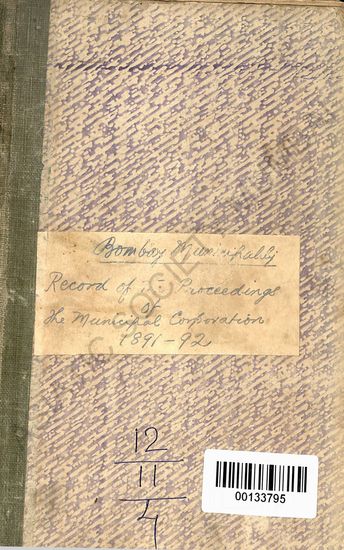 Bombay Municipality
Record of Proceedings
of
the Municipal Corporation
1891-92
12
11
4
00133795